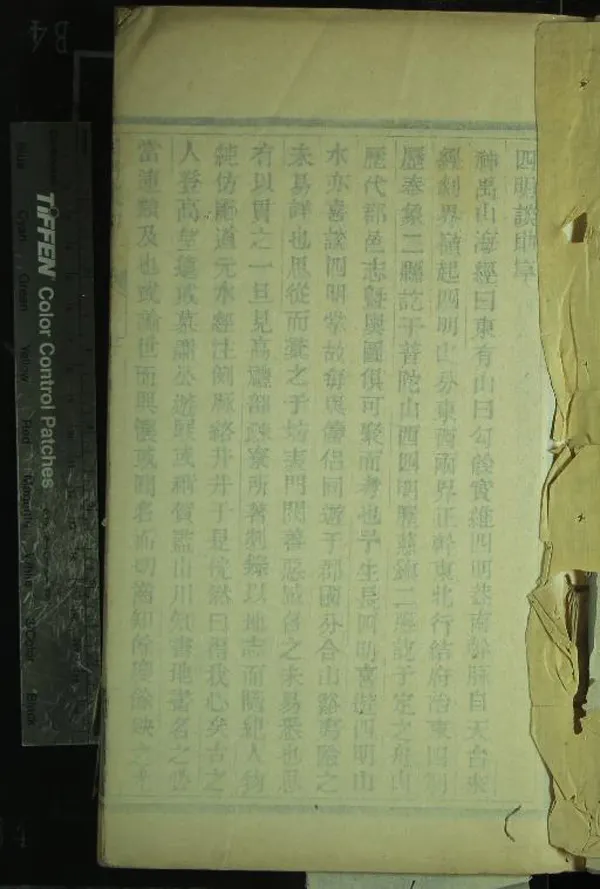 四明談助序
神禹山海經曰東有山曰句餘實維四明蓋南幹脈自天台來
經剡界嶺起四明山分東西兩界正幹東北行結府治東四明
歷奉象二縣訖于普陀山西四明歷慈鎮二縣訖于定之舟山
歷代郡邑志暨輿圖俱可聚而考也予生長四明喜遊四明山
水亦喜談四明掌故每與儔侶同遊于郡國分合山谿夷險之
未易詳也思從而彙之于坊表門閭善惡之未易悉也思
有以貫之一旦見高疎寮所著剡錄以地志而隨紀人物
純仿酈道元水經注例脈絡井井于是恍然曰得我心矣古之
人登高望遠或慕謝公遊屐或稱賀監山川知書地書名之
當連類及也或論世而興懷或聞名而知餘慶餘殃之
TIFFEN Color Control Patches
Blue
Cyan
Green
Yellow
Red
Magenta
White
3/Color
Black
B4